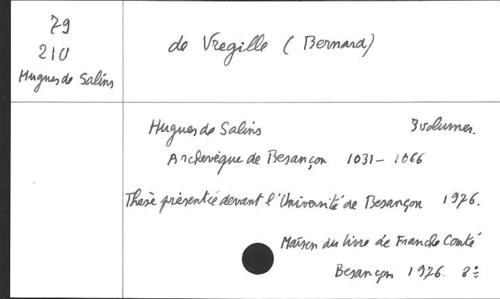 79
210
Hugues de Salins
de Vregille (Bernard)
Hugues de Salins 3 volumes.
Archevêque de Besançon 1031-1066
Thèse présentée devant l'Université de Besançon 1976.
Maison du livre de Franche Comté
Besançon 1976. 8º